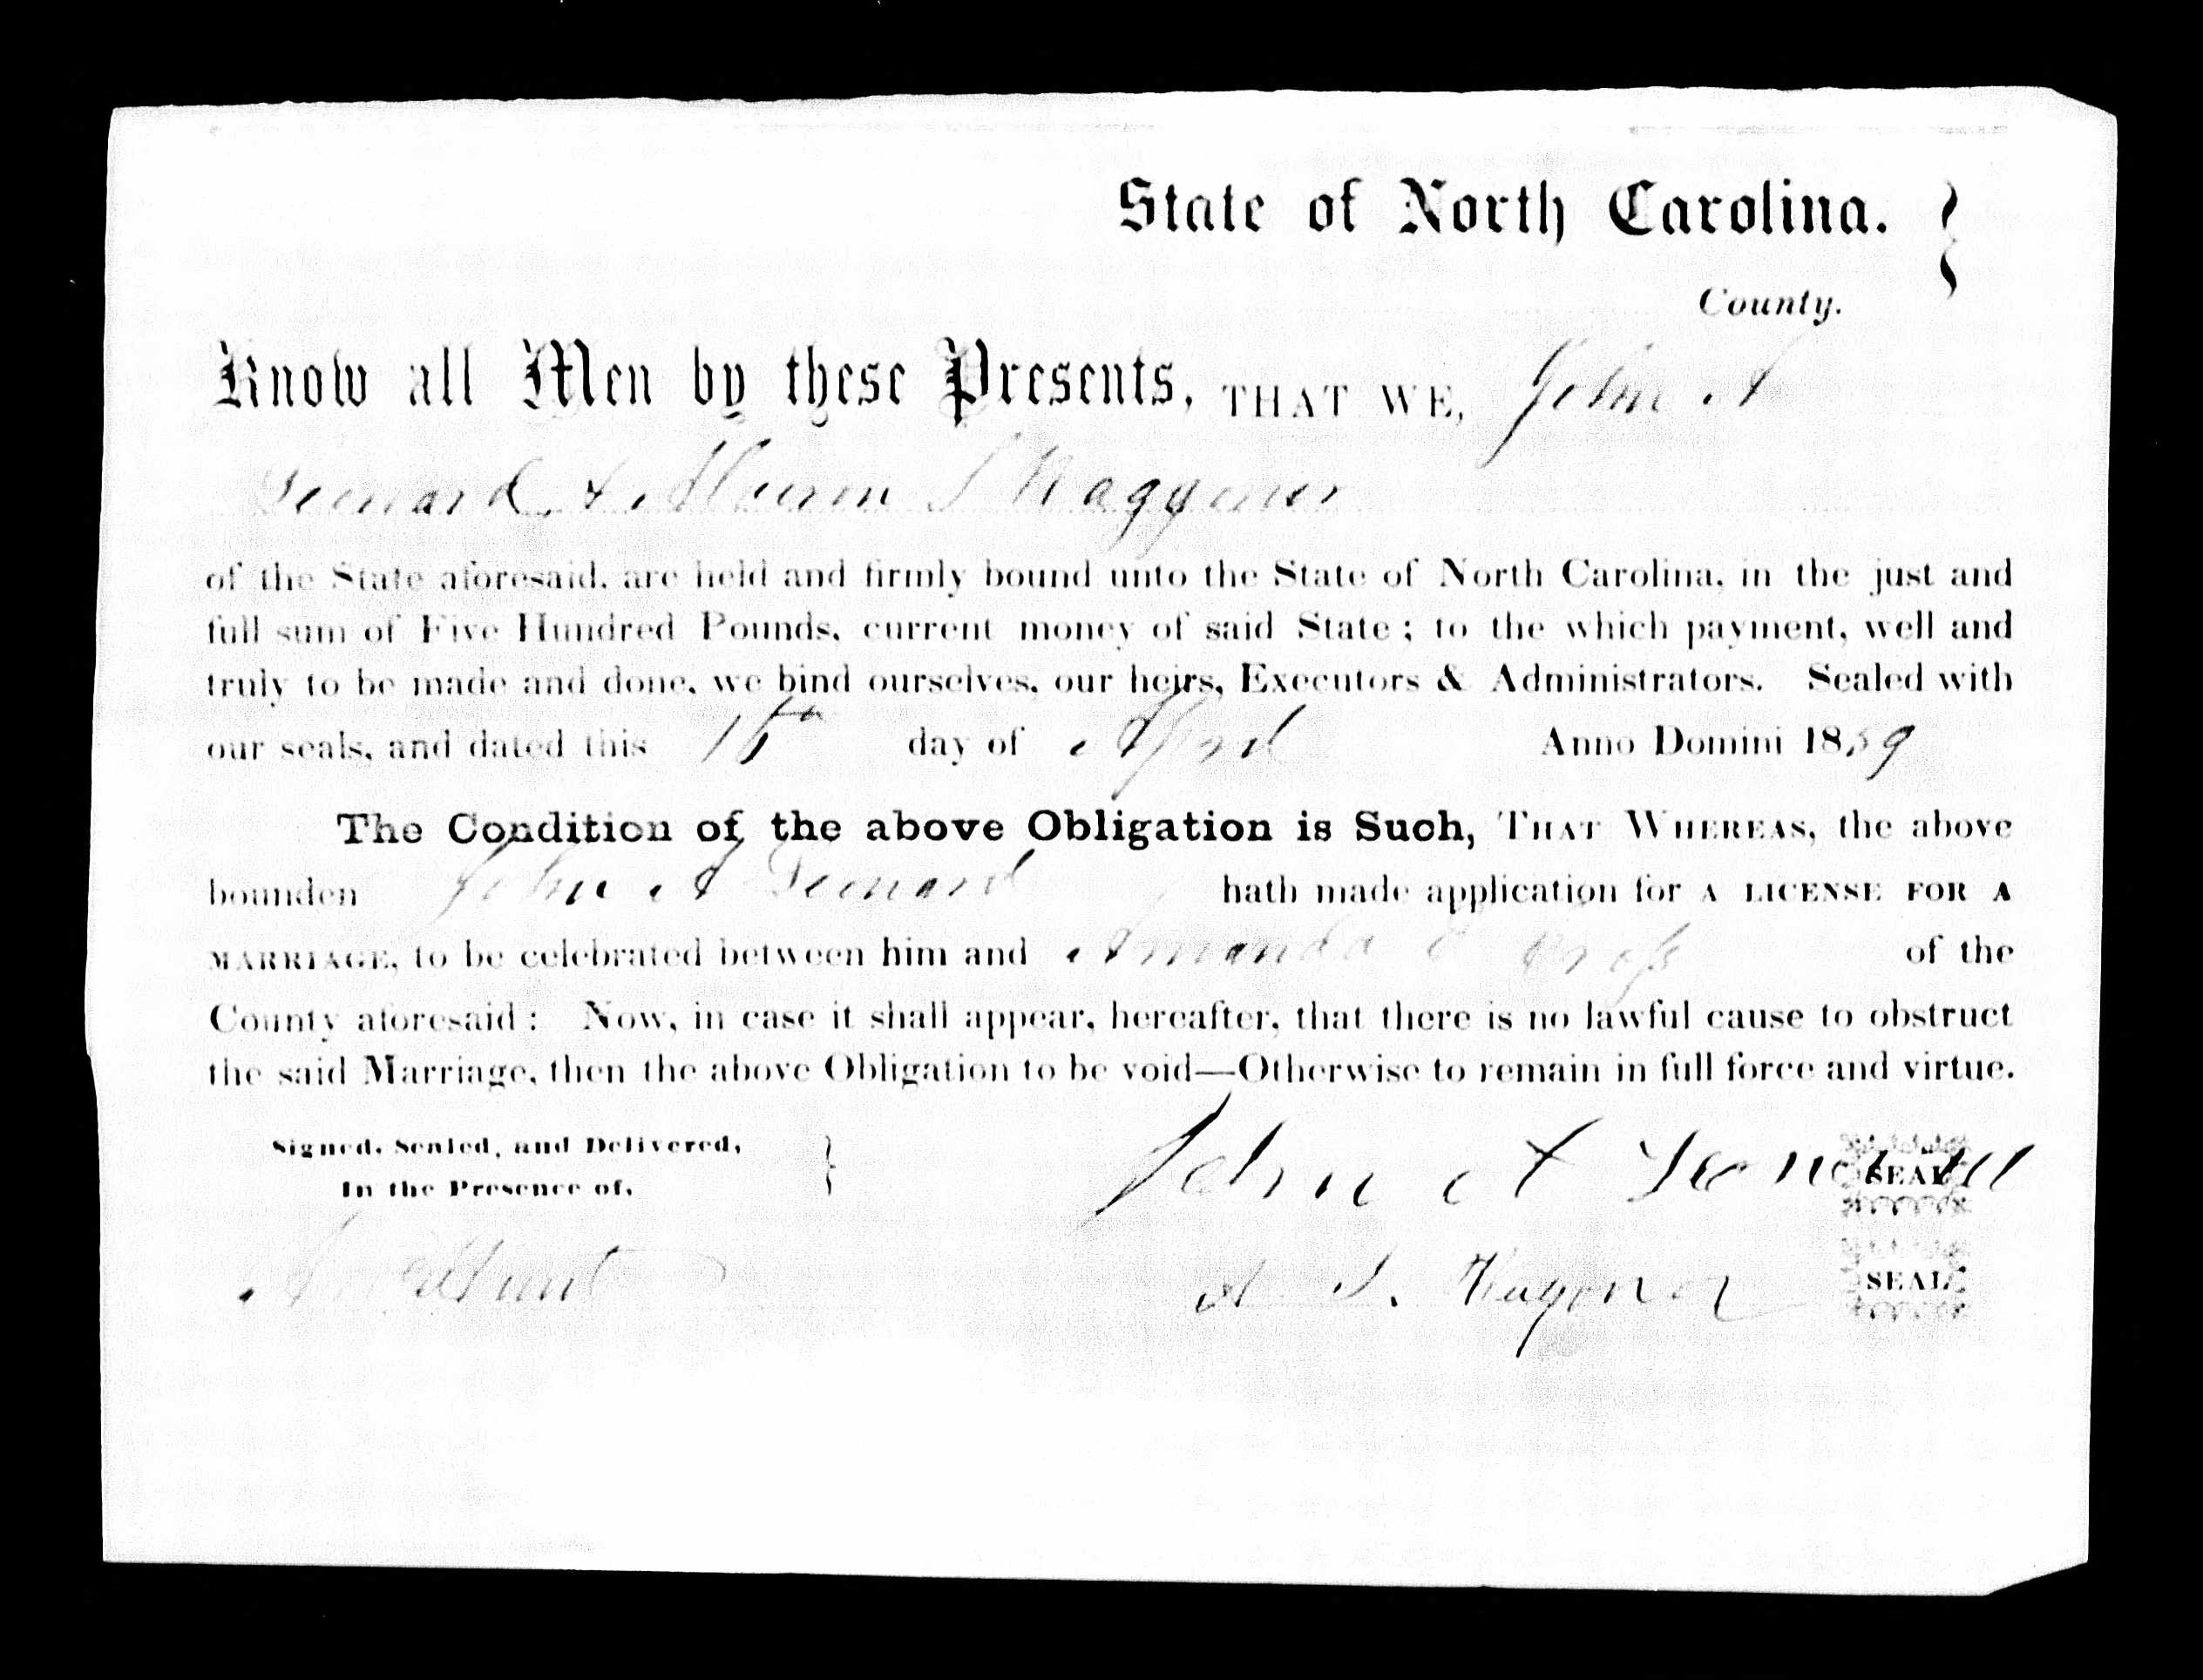 State of North Carolina.
County.
Know all Men by these Presents, THAT WE, John A
Leonard, & Hiram S Waggoner
of the State aforesaid, are held and firmly bound unto the State of North Carolina, in the just and
full sum of Five Hundred Pounds, current money of said State; to the which payment, well and
truly to be made and done, we bind ourselves, our heirs, Executors & Administrators. Sealed with
our seals, and dated this 15th day of April Anno Domini 1859
The Condition of the above Obligation is Such, THAT WHEREAS, the above
bounden John A Leonard hath made application for A LICENSE FOR A
MARRIAGE, to be celebrated between him and Amanda of the
County aforesaid: Now, in case it shall appear, hereafter, that there is no lawful cause to obstruct
the said Marriage, then the above Obligation to be void—Otherwise to remain in full force and virtue.
Signed, Sealed, and Delivered,
In the Presence of,
John A Leonard SEAL
S. Wagoner SEAL